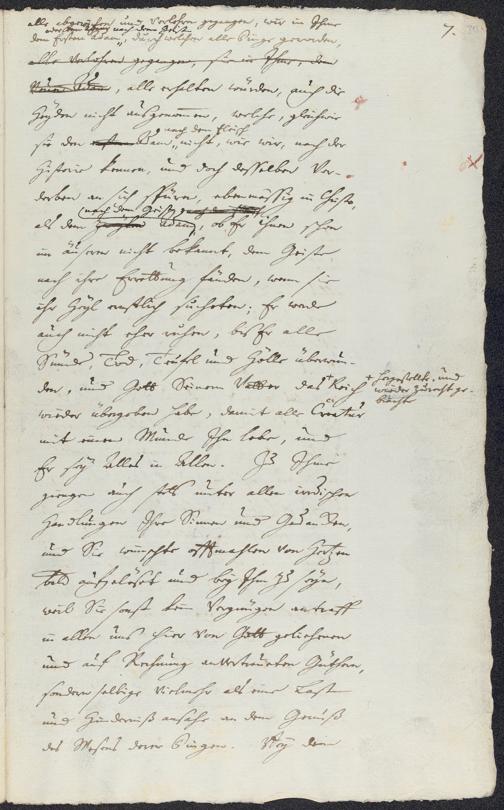 7.
alle abgewichen und verlohren gegangen, wir in Ihme
nach dem Geist
dem Ersten Adam, durch welchen alle Dinge geworden,
alle verlohren gegangen, sie in Ihme, dem
Adam, alle erhalten würden, auch die
Heyden nicht ausgenommen, welche, gleichwie
nach dem Fleisch
sie den Adam, nicht, wie wir, nach der
Historie kennen, und doch desselben Ver-
derben an sich spüren, ebenmässig in Christo,
(nach dem Geist)
als dem Adam, ob Er ihnen schon
im äusern nicht bekannt, dem Geiste
nach ihre Errettung fänden, wenn sie
ihr Heyl ernstlich sucheten; Er werde
auch nicht eher ruhen, bis Er alle
Sünde, Tod, Teufel und Hölle überwun-
den, und Gott Seinem Vatter das + Reich
+ hergestellte, und
wieder zurecht ge-
brachte
wieder übergeben habe, damit alle Creatur
mit einem Munde Ihn lobe, und
Er sey Alles in Allen. Zu Ihme
giengen auch stets unter allen irrdischen
Handlungen Ihre Sinnen und Gedancken,
und Sie wünschte offtmahlen von Hertzen
bald aufgelöset und bey Ihm zu seyn,
weil Sie sonst kein Vergnügen antraff
in allen uns hier von Gott geliehenen
und auf Rechnung anvertrauten Güthern,
sondern selbige vielmehr als eine Last
und Hinderniß ansahe an dem Genuß
des Wesens derer Dingen. Bey dem